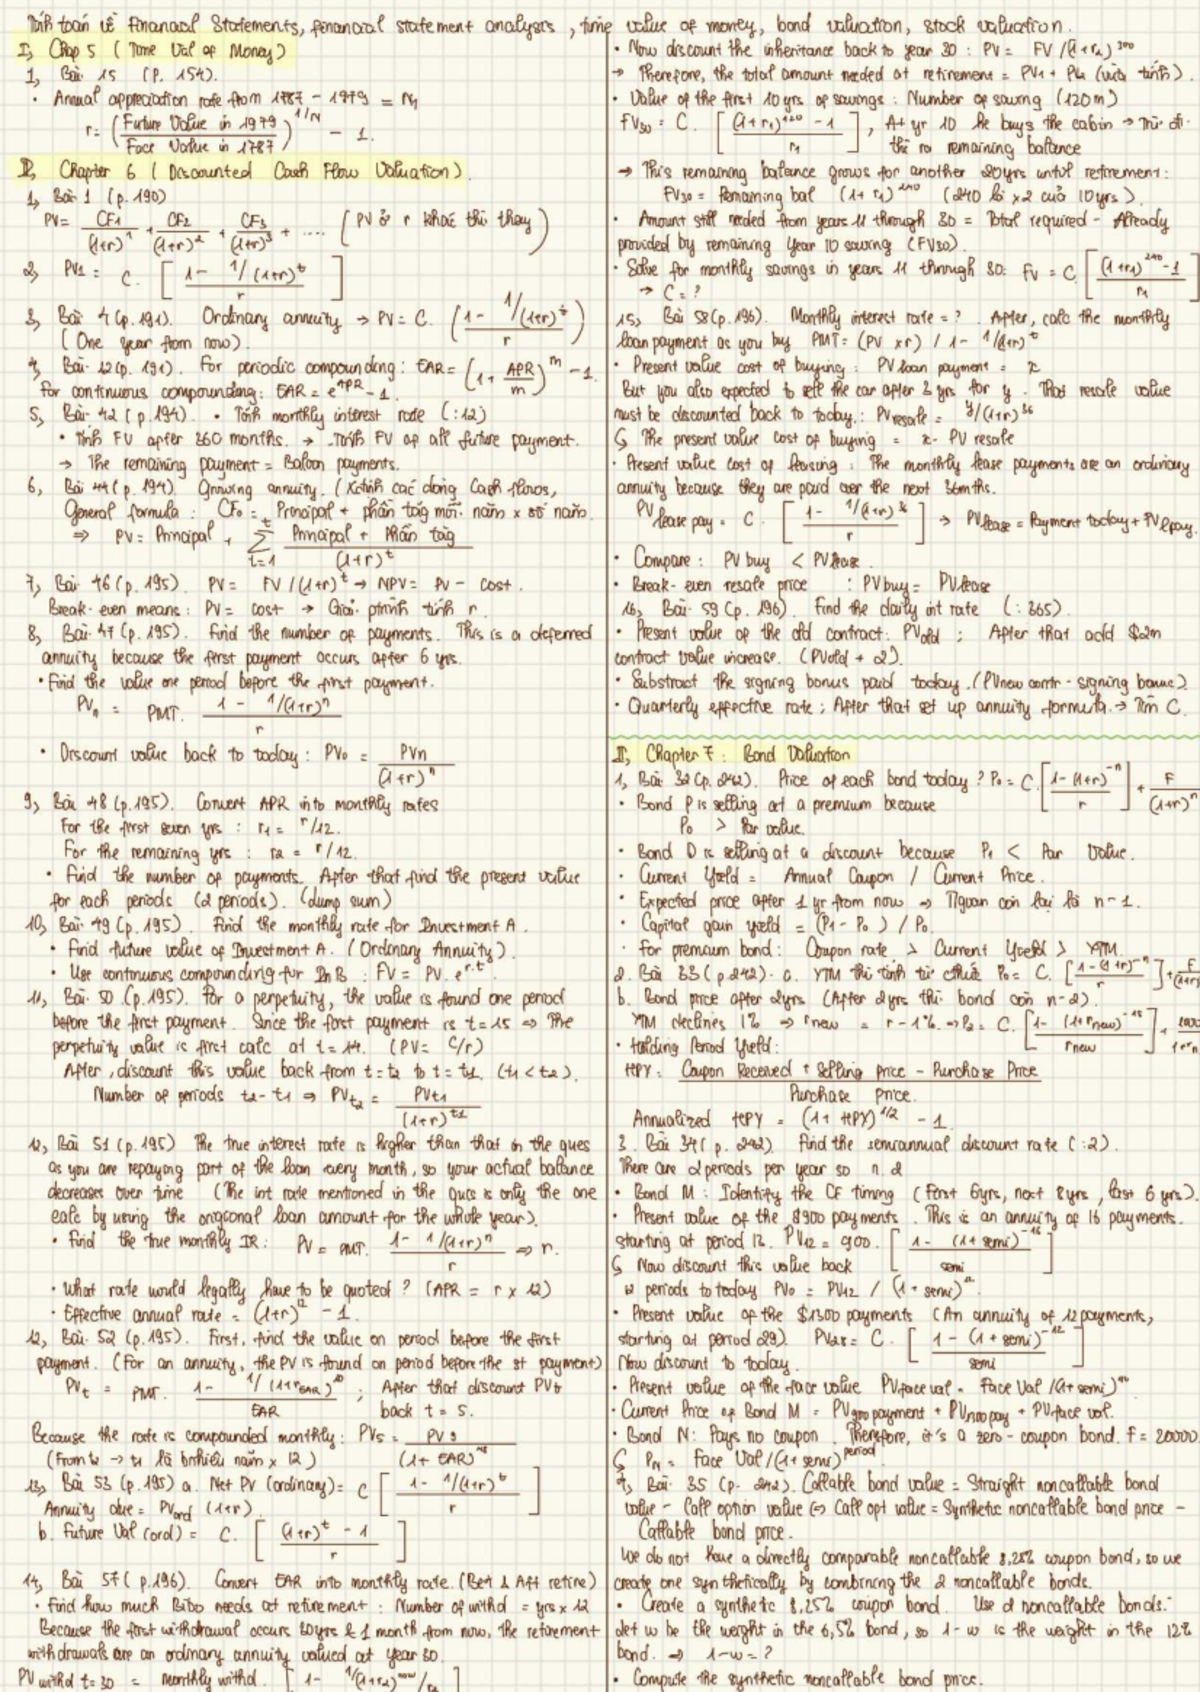 Tính toán về Financial Statements, financial statement analysis, time value of money, bond valuation, stock valuation.
I, Chap 5 (Time Val of Money)
1, Bài 15 (P. 154).
• Annual appreciation rate from 1787 - 1979 = N
r = (Future Value in 1979 / Face Value in 1787)^1/N - 1.
II, Chapter 6 (Discounted Cash Flow Valuation).
1, Bài 1 (p.190)
PV = CF1/(1+r)^1 + CF2/(1+r)^2 + CF3/(1+r)^3 + .... (PV ở r khác thì thay)
2, PV1 = C. [1 - 1/(1+r)^t / r]
3, Bài 4 (p.191). Ordinary annuity → PV = C. (1 - 1/(1+r)^t / r)
(One year from now).
4, Bài 12 (p.191). For periodic compounding: EAR = (1 + APR/m)^m - 1.
For continuous compounding: EAR = e^APR - 1.
5, Bài 42 (p.194). • Tính monthly interest rate (:12)
• Tính FV after 360 months. → Tính FV of all future payment.
→ The remaining payment = Baloon payments.
6, Bài 44 (p.194). Growing annuity. (Xđịnh các dòng Cash flows,
General formula: CF0 = Principal + phần tăg mỗi năm x số năm.
⇒ PV = Principal + ∑ t=1 t Principal + Phần tăg / (1+r)^t
7, Bài 46 (p.195). PV = FV/(1+r)^t → NPV = PV - Cost.
Break-even means: PV = cost → Giải ptrình tính r.
8, Bài 47 (p.195). Find the number of payments. This is a deferred
annuity because the first payment occurs after 6 yrs.
• Find the value one period before the first payment.
PVn = PMT. 1 - 1/(1+r)^n / r
• Discount value back to today: PV0 = PVn / (1+r)^n
9, Bài 48 (p.195). Convert APR into monthly rates
For the first seven yrs: r1 = r/12.
For the remaining yrs: r2 = r/12.
• Find the number of payments. After that find the present value
for each periods (2 periods). (dump sum)
10, Bài 49 (p.195). Find the monthly rate for Investment A.
• Find future value of Investment A. (Ordinary Annuity).
• Use continuous compounding for In B: FV = PV. e^r.t
11, Bài 50 (p.195). For a perpetuity, the value is found one period
before the first payment. Since the first payment is t=15 ⇒ The
perpetuity value is first calc at t=14. (PV = C/r)
After, discount this value back from t=t2 to t=t1. (t1 < t2).
Number of periods t2-t1 ⇒ PVt2 = PVt1 / (1+r)^t1
12, Bài 51 (p.195) The true interest rate is higher than that in the ques
as you are repaying part of the loan every month, so your actual balance
decreases over time (The int rate mentioned in the ques is only the one
calc by using the origional loan amount for the whole year).
• Find the true monthly IR: PV = PMT. 1 - 1/(1+r)^n / r ⇒ r.
• What rate would legally have to be quoted? (APR = r x 12)
• Effective annual rate = (1+r)^12 - 1.
12, Bài 52 (p.195). First, find the value on period before the first
payment. (For an annuity, the PV is found on period before the 1st payment)
PVt = PMT. 1 - 1/(1+rEAR)^20 / EAR ; After that discount PVt back t = 5.
Because the rate is compounded monthly: PV5 = PV9 / (1+EAR)^48
(From t2 → t1 là bnhiêu năm x 12)
13, Bài 53 (p.195) a. Net PV (ordinary) = C [1 - 1/(1+r)^t / r]
Annuity due = PVord (1+r).
b. Future Val (ord) = C. [(1+r)^t - 1 / r]
14, Bài 57 (p.196). Convert EAR into monthly rate. (Bef & Aft retire)
• Find how much Bilbo needs at retirement: Number of withd = yrs x 12
Because the first withdrawal occurs 30yrs & 1 month from now, the retirement
withdrawals are an ordinary annuity valued at year 30.
PV withd t=30 = monthly withd. [1 - 1/(1+r2)
• Now discount the inheritance back to year 30: PV = FV/(1+r2)^300
→ Therefore, the total amount needed at retirement = PV1 + PV2 (vừa tính).
• Value of the first 10yrs of savings: Number of saving (120m)
FV30 = C. [(1+r1)^120 - 1 / r1], At yr 10 he buys the cabin → Trừ đi
thì ra remaining baltance
→ This remaining balance grows for another 20yrs until retirement:
FV30 = Remaining bal (1+r1)^240 (240 là x2 của 10yrs).
• Amount still needed from years 11 through 30 = Total required - Already
provided by remaining Year 10 saving (FV30).
• Solve for monthly savings in years 11 through 30: FV = C [(1+r1)^240 - 1 / r1]
→ C = ?
15, Bài 58 (p.196). Monthly interest rate = ? . After, calc the monthly
loan payment as you buy PMT = (PV x r) / 1 - 1/(1+r)^t
• Present value cost of buying: PV loan payment = x
But you also expected to sell the car after 3 yrs for y. That resale value
must be discounted back to today: PV resale = y/(1+r)^36
↳ The present value cost of buying = x - PV resale
• Present value cost of leasing: The monthly lease payments are an ordinary
annuity because they are paid over the next 36mths.
PV lease pay = C. [1 - 1/(1+r)^36 / r] → PVlease = Payment today + PVlpay.
• Compare: PV buy < PV lease.
• Break-even resale price : PV buy = PV lease
16, Bài 59 (p.196). Find the daily int rate (:365).
• Present value of the old contract: PVold ; After that add $2m
contract value increase. (PVold + 2).
• Substract the signing bonus paid today. (PVnew contr - signing bonus)
• Quarterly effective rate; After that set up annuity formula → Tìm C.
II, Chapter 7: Bond Valuation
1, Bài 32 (p.242). Price of each bond today? P0 = C [1 - (1+r)^-n / r] + F/(1+r)^n
• Bond P is selling at a premium because
P0 > Par value.
• Bond D is selling at a discount because P1 < Par Value.
• Current Yield = Annual Coupon / Current Price.
• Expected price after 1 yr from now → Tgian còn lại là n-1.
• Capital gain yield = (P1 - P0) / P0.
• For premium bond: Coupon rate > Current Yield > YTM.
2. Bài 33 (p.242). a. YTM thì tính từ P0 = C. [1 - (1+r)^-n / r] + F/(1+r)
b. Bond price after 2yrs (After 2yrs thì bond còn n-2).
YTM declines 1% ⇒ rnew = r - 1% ⇒ P2 = C. [1 - (1+rnew) / rnew] +
• Holding Period Yield:
HPY: Coupon Received + Selling Price - Purchase Price / Purchase Price.
Annualized HPY = (1 + HPY)^1/2 - 1.
3. Bài 34 (p.242). Find the semiannual discount rate (:2).
There are 2 periods per year so n.2
• Bond M: Identify the CF timing (First 6yrs, next 8yrs, last 6 yrs).
• Present value of the $900 payments. This is an annuity of 16 payments.
starting at period 13. PV12 = 900. [1 - (1+semi)^-16 / semi]
↳ Now discount this value back
12 periods to today PV0 = PV12 / (1+semi)^12
• Present value of the $1300 payments (An annuity of 12payments,
starting at period 29). PV28 = C. [1 - (1+semi)^-12 / semi]
Now discount to today.
• Present value of the face value PVface val = Face Val/(1+semi)^40
• Current Price of Bond M = PV900payment + PV1300pay + PVface val.
• Bond N: Pays no coupon. Therefore, it's a zero-coupon bond. F = 20000
↳ PN = Face Val/(1+semi)^period
4, Bài 35 (p. 242). Callable bond value = Straight noncallable bond
value - Call option value ⇔ Call opt value = Synthetic noncallable bond price -
Callable bond price.
We do not have a directly comparable noncallable 8,25% coupon bond, so we
create one synthetically by combining the 2 noncallable bonds.
• Create a synthetic 8,25% coupon bond. Use 2 noncallable bonds:
Let w be the weight in the 6,5% bond, so 1-w is the weight in the 12%
bond. ⇒ 1-w = ?
• Compute the synthetic noncallable bond price.